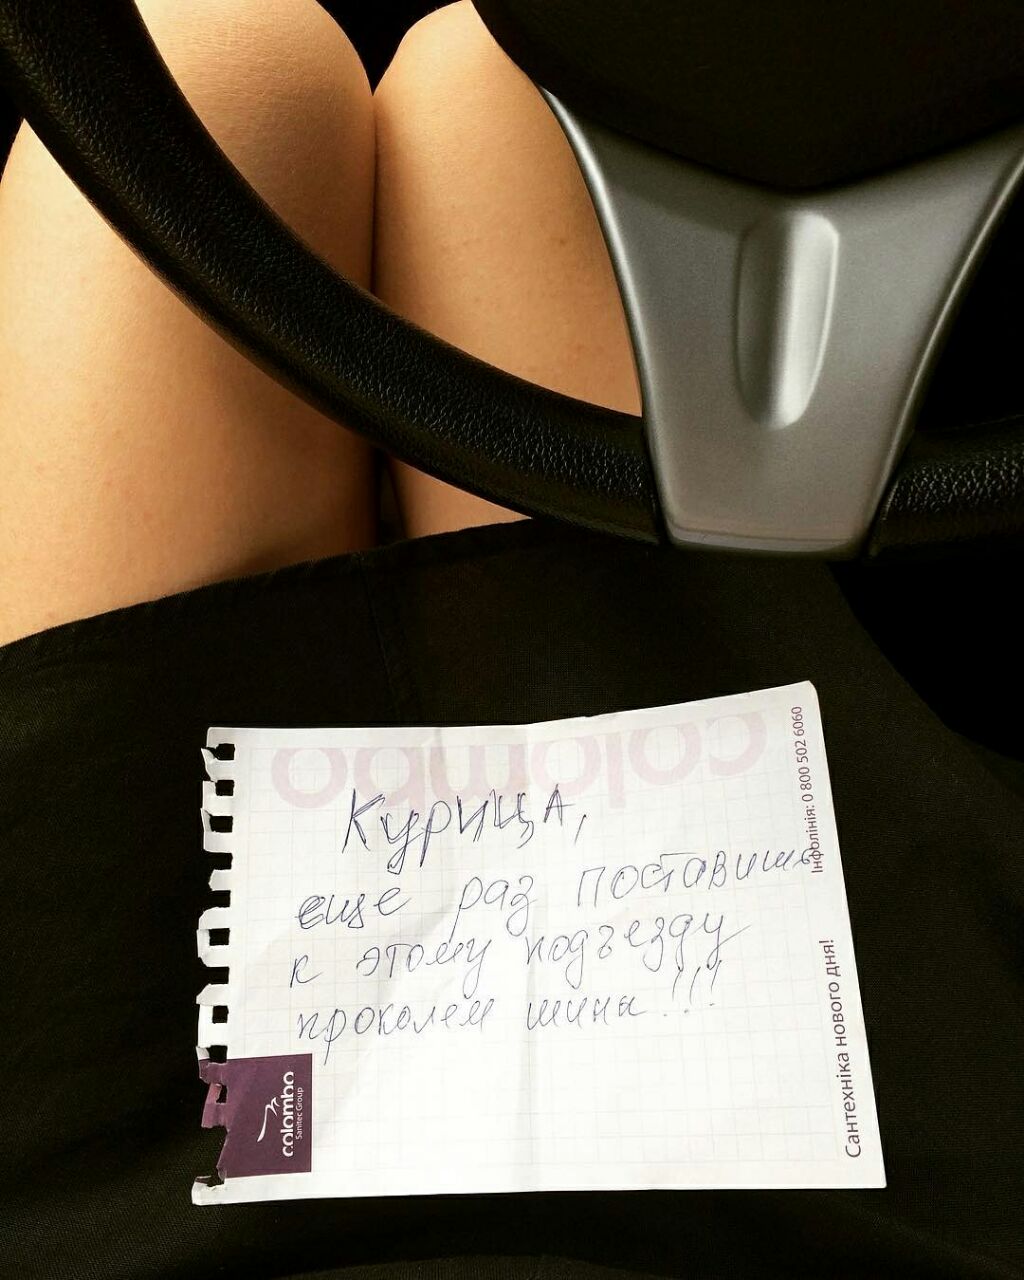 colombo
Курица,
еще раз поставишь
к этому подъезду
проколем шины!!!
Інфолінія: 0 800 502 6060
Сантехніка нового дня!
colombo
Sanitec Group